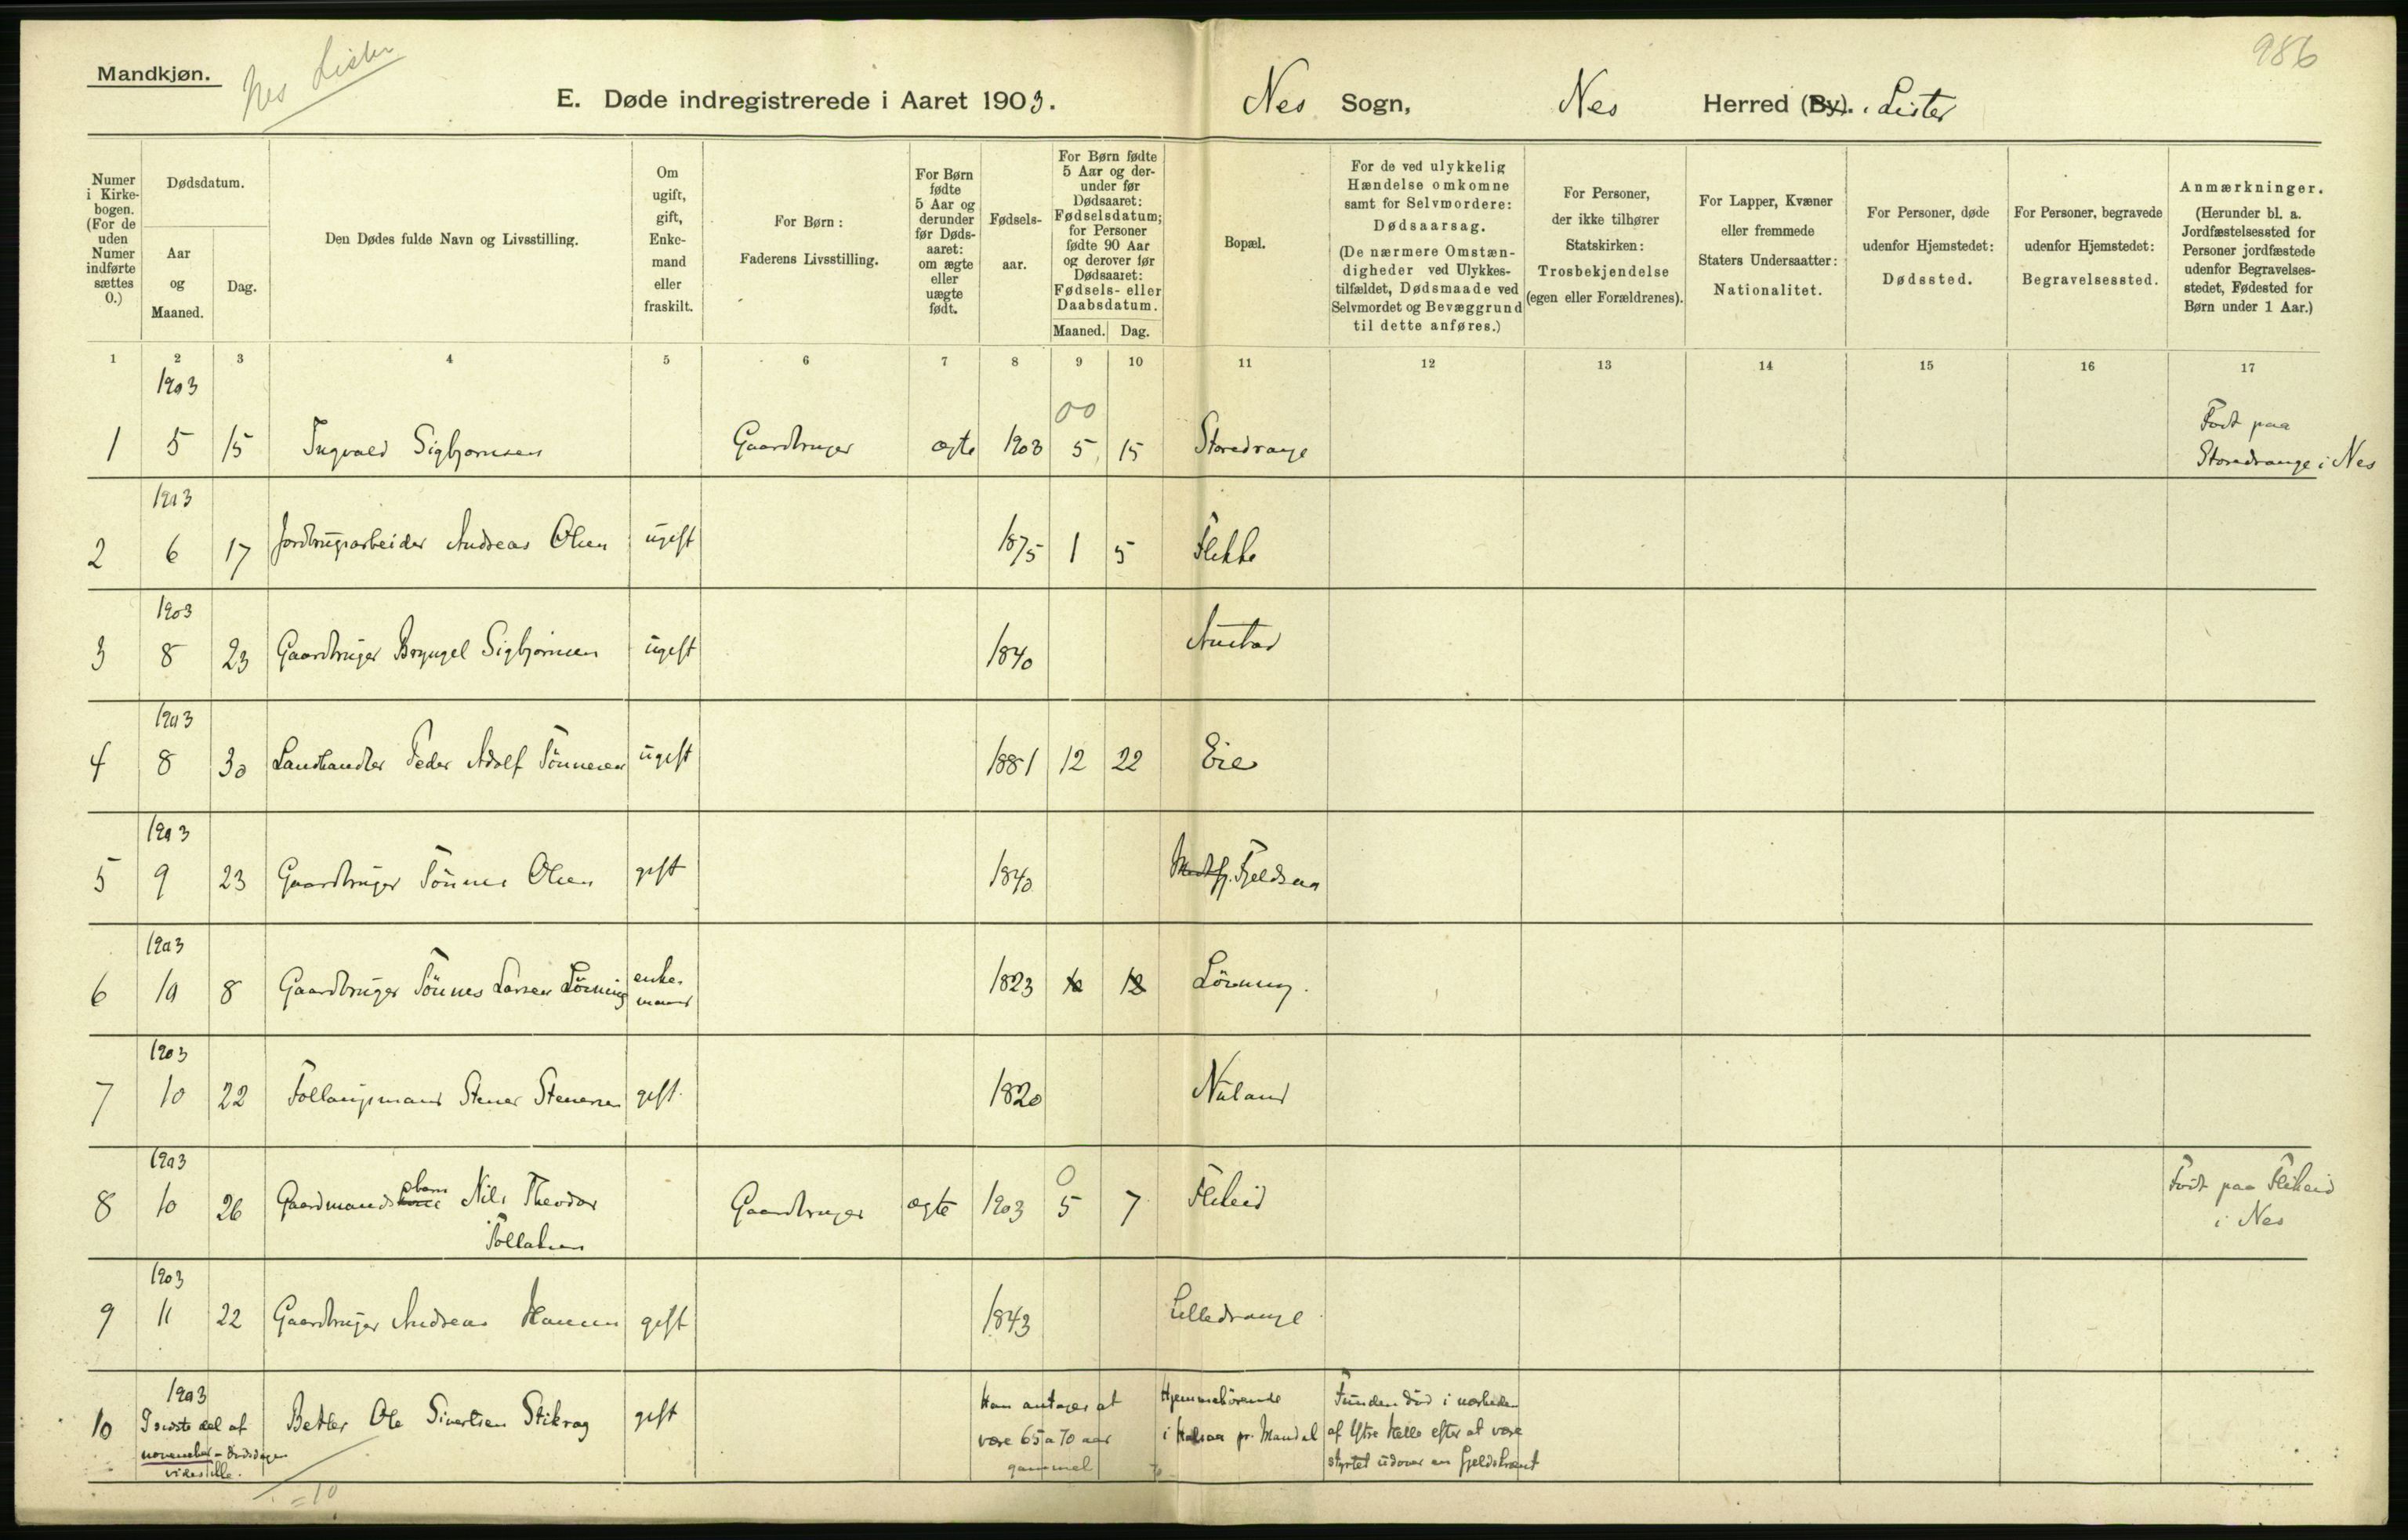 Mandkjøn.
Nes Lister
986
E. Døde indregistrerede i Aaret 1903.
Nes Sogn, Nes Herred (By). i Lister
Numer i Kirkebogen. (For de uden Numer indførte sættes 0.)
Dødsdatum.
Aar og Maaned.
Dag.
Den Dødes fulde Navn og Livsstilling.
Om ugift, gift, Enkemand eller fraskilt.
For Børn: Faderens Livsstilling.
For Børn fødte 5 Aar og derunder før Dødsaaret: om ægte eller uægte født.
Fødselsaar.
For Børn fødte 5 Aar og derunder før Dødsaaret: Fødselsdatum; for Personer fødte 90 Aar og derover før Dødsaaret: Fødsels- eller Daabsdatum.
Maaned. Dag.
Bopæl.
For de ved ulykkelig Hændelse omkomne samt for Selvmordere: Dødsaarsag.
(De nærmere Omstændigheder ved Ulykkestilfældet, Dødsmaade ved Selvmordet og Bevæggrund til dette anføres.)
For Personer, der ikke tilhører Statskirken: Trosbekjendelse (egen eller Forældrenes).
For Lapper, Kvæner eller fremmede Staters Undersaatter: Nationalitet.
For Personer, døde udenfor Hjemstedet: Dødssted.
For Personer, begravede udenfor Hjemstedet: Begravelsessted.
Anmærkninger.
(Herunder bl. a. Jordfæstelsessted for Personer jordfæstede udenfor Begravelsesstedet, Fødested for Børn under 1 Aar.)
1 2 3 4 5 6 7 8 9 10 11 12 13 14 15 16 17
1903
00
1 5 15 Ingvald Sigbjørnsen Gaardbruger ægte 1903 5 15 Storedrange Født paa Storedrange i Nes
1903
2 6 17 Jordbrugsarbeider Andreas Olsen ugift 1875 1 5 Flikke
1903
3 8 23 Gaardbruger Bryngel Sigbjørnsen ugift 1840 Austad
1903
4 8 30 Landhandler Peder Adolf Tønnesen ugift 1881 12 22 Eie
1903
5 9 23 Gaardbruger Tønnes Olsen gift 1840 Fjeldsaa
1903
6 10 8 Gaardbruger Tønnes Larsen Lønning enkemand 1823 12 Lønning.
1903
7 10 22 Follaugsmand Stener Stenersen gift. 1820 Nuland
1903
0
8 10 26 Gaardmandsbarn Nils Theodor Tollaksen Gaardbruger ægte 1903 5 7 Flikeid Født paa Flikeid i Nes
1903
9 11 22 Gaardbruger Andreas Hansen gift 1843 Lilledrange
1903
10 I sidste del af november – dødsdagen vides ikke. Betler Ole Sivertsen Stikrag gift Han antages at være 65 a 70 aar gammel Hjemmehørende i Halsaa pr. Mandal Funden død i nærheden af Ytre Helle efter at være styrtet udover en fjeldskrænt
= 10